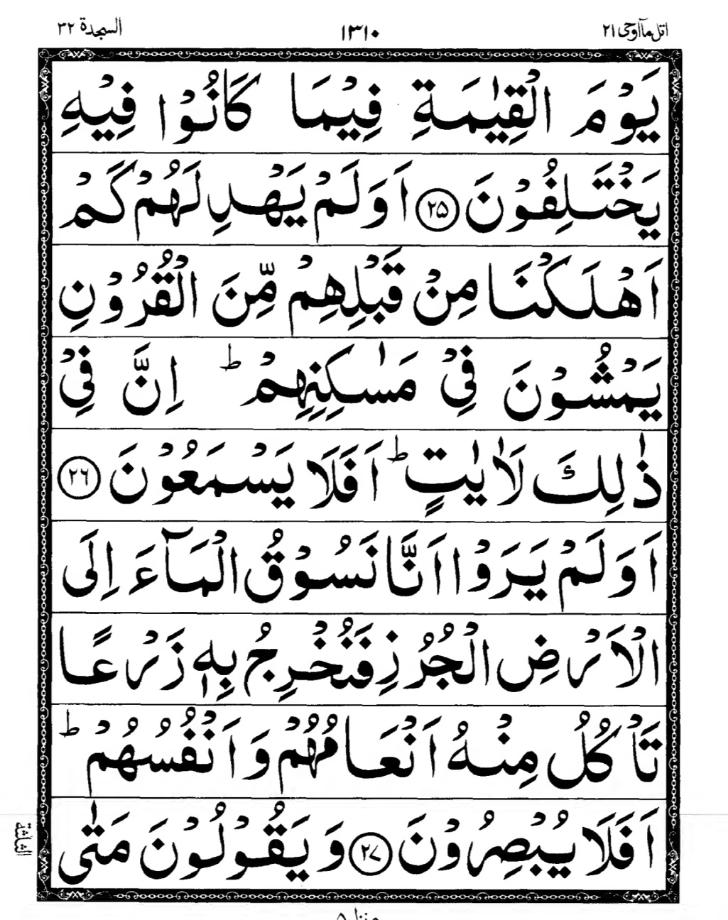 اتل مآاوحی ۲۱ ۱۳۱۰ السجدة ۳۲
یَوْمَ الْقِیٰمَةِ فِیْمَا كَانُوْا فِیْهِ
یَخْتَلِفُوْنَ ۲۵ اَوَلَمْ یَهْدِ لَهُمْ كَمْ
اَهْلَكْنَا مِنْ قَبْلِهِمْ مِّنَ الْقُرُوْنِ
یَمْشُوْنَ فِیْ مَسٰكِنِهِمْ ؕ اِنَّ فِیْ
ذٰلِكَ لَاٰیٰتٍ ؕ اَفَلَا یَسْمَعُوْنَ ۲۶
اَوَلَمْ یَرَوْا اَنَّا نَسُوْقُ الْمَآءَ اِلَی
الْاَرْضِ الْجُرُزِ فَنُخْرِجُ بِهٖ زَرْعًا
تَاْكُلُ مِنْهُ اَنْعَامُهُمْ وَ اَنْفُسُهُمْ ؕ
اَفَلَا یُبْصِرُوْنَ ۲۷ وَ یَقُوْلُوْنَ مَتٰی
الثلثة
منزل ۵